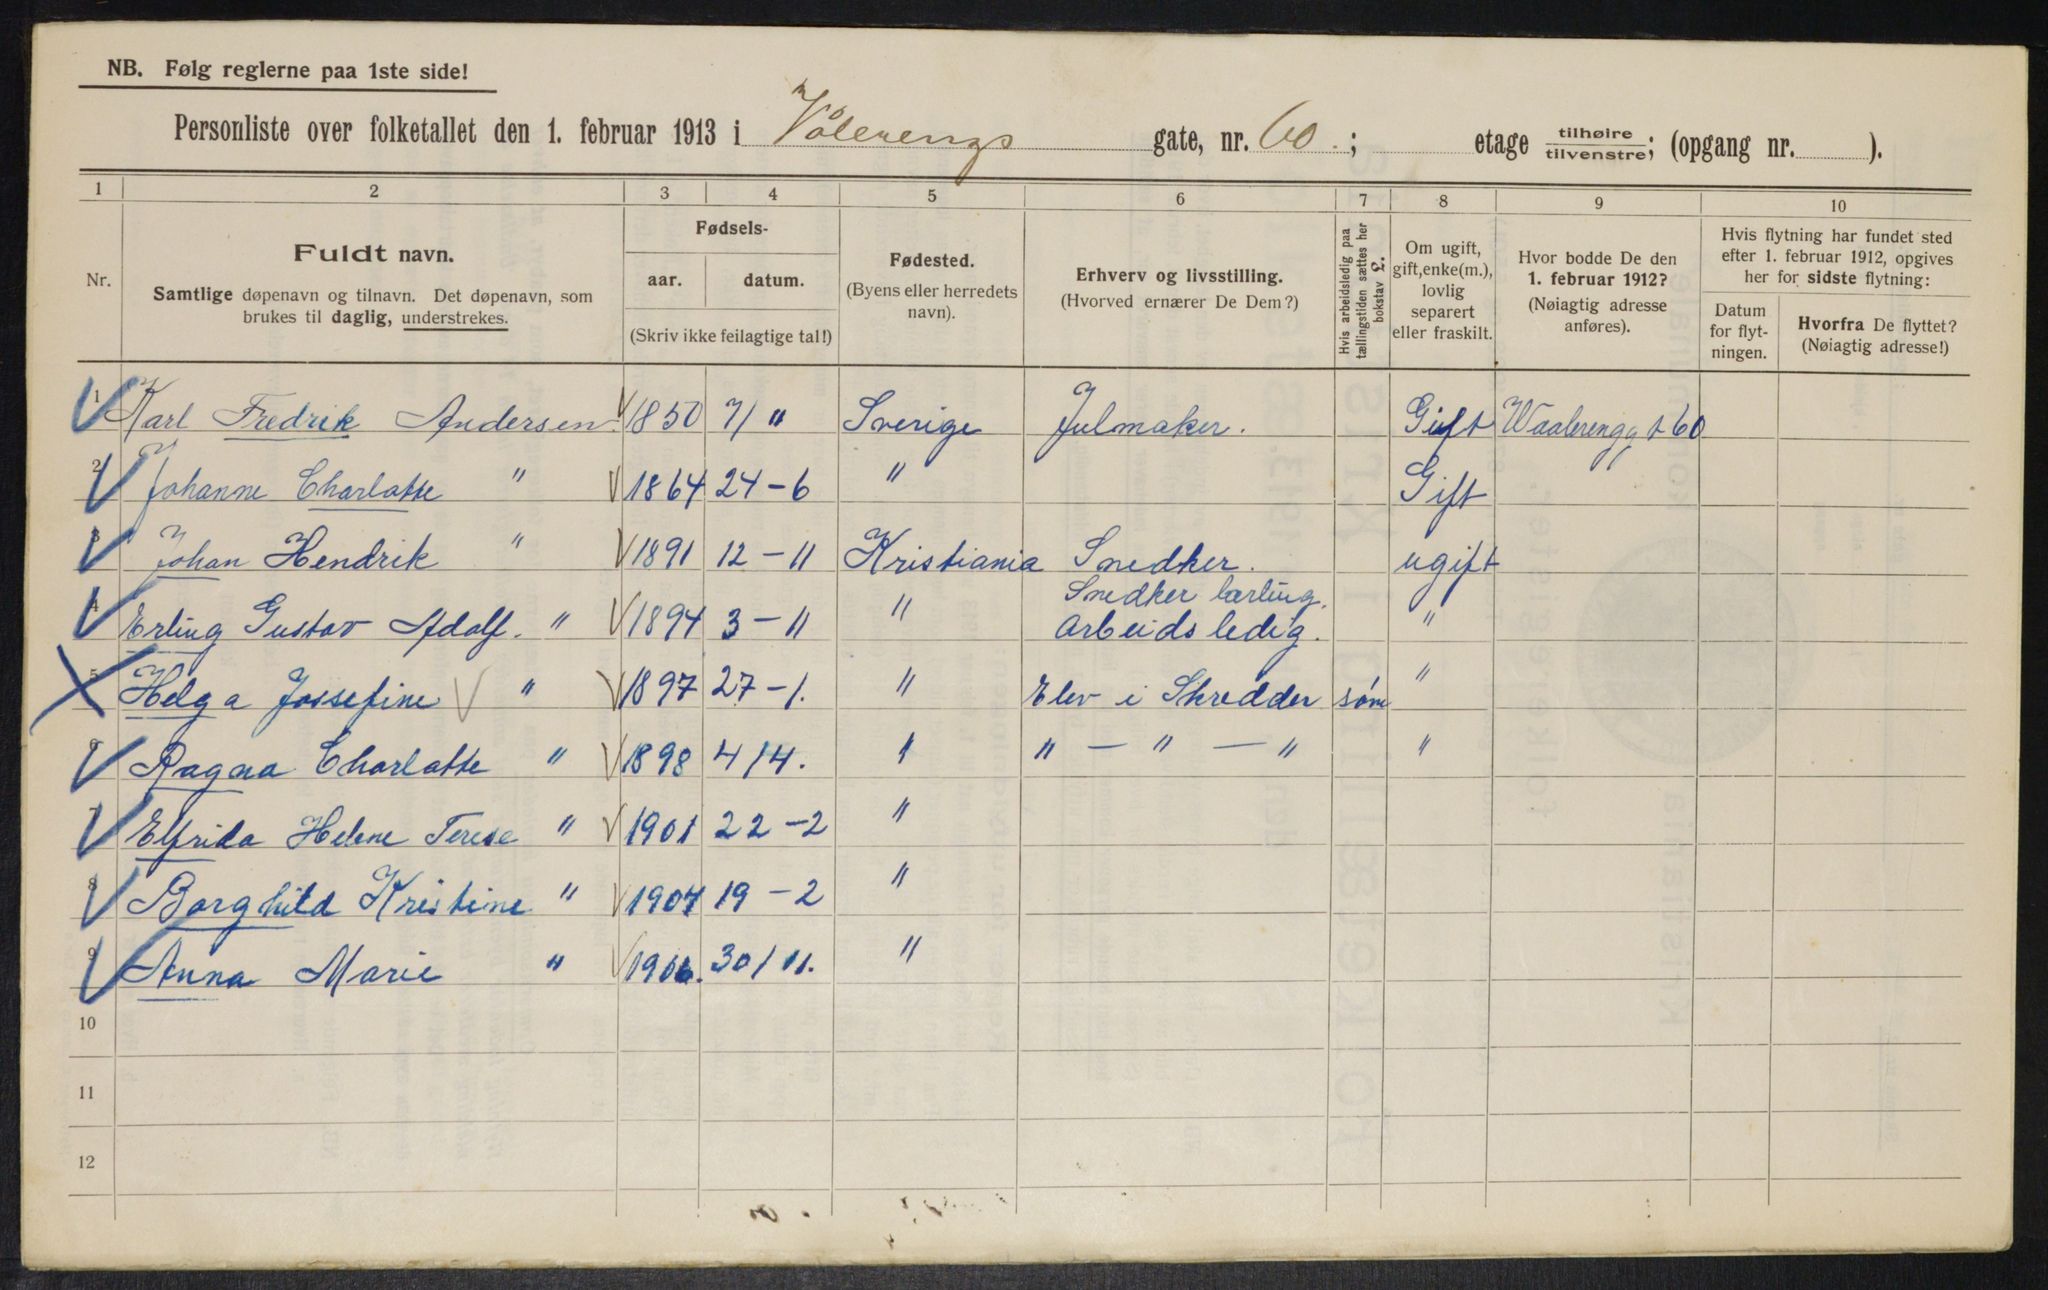 NB. Følg reglerne paa 1ste side!
Personliste over folketallet den 1. februar 1913 i Vålerengs gate, nr. 60. ; etage tilhøire / tilvenstre; (opgang nr. ).
1 2 3 4 5 6 7 8 9 10
Nr.
Fuldt navn.
Samtlige døpenavn og tilnavn. Det døpenavn, som
brukes til daglig, understrekes.
Fødsels-
aar. datum.
(Skriv ikke feilagtige tal!)
Fødested.
(Byens eller herredets
navn).
Erhverv og livsstilling.
(Hvorved ernærer De Dem?)
Hvis arbeidsledig paa
tællingstiden sættes her
bokstav L.
Om ugift,
gift, enke(m.),
lovlig
separert
eller fraskilt.
Hvor bodde De den
1. februar 1912?
(Nøiagtig adresse
anføres).
Hvis flytning har fundet sted
efter 1. februar 1912, opgives
her for sidste flytning:
Datum
for flyt-
ningen.
Hvorfra De flyttet?
(Nøiagtig adresse!)
1 Karl Fredrik Andersen. 1850 7/" Sverige Julmaker. Gift Waalerengg t 60
2 Johanne Charlotte " 1864 24-6 " Gift
3 Johan Hendrik " 1891 12-11 Kristiania Snedker. ugift
4 Erling Gustav Adolf. " 1894 3-11 " Snedker lærling. "
Arbeids ledig.
5 Helga Jossefine " 1897 27-1. " Elev i Skredder søm "
6 Ragna Charlotte " 1898 4/4. " " — " — " "
7 Elfrida Helene Terese " 1901 22-2 "
8 Borghild Kristine " 1904 19-2 "
9 Anna Marie " 1906. 30/11. "
10
11
12